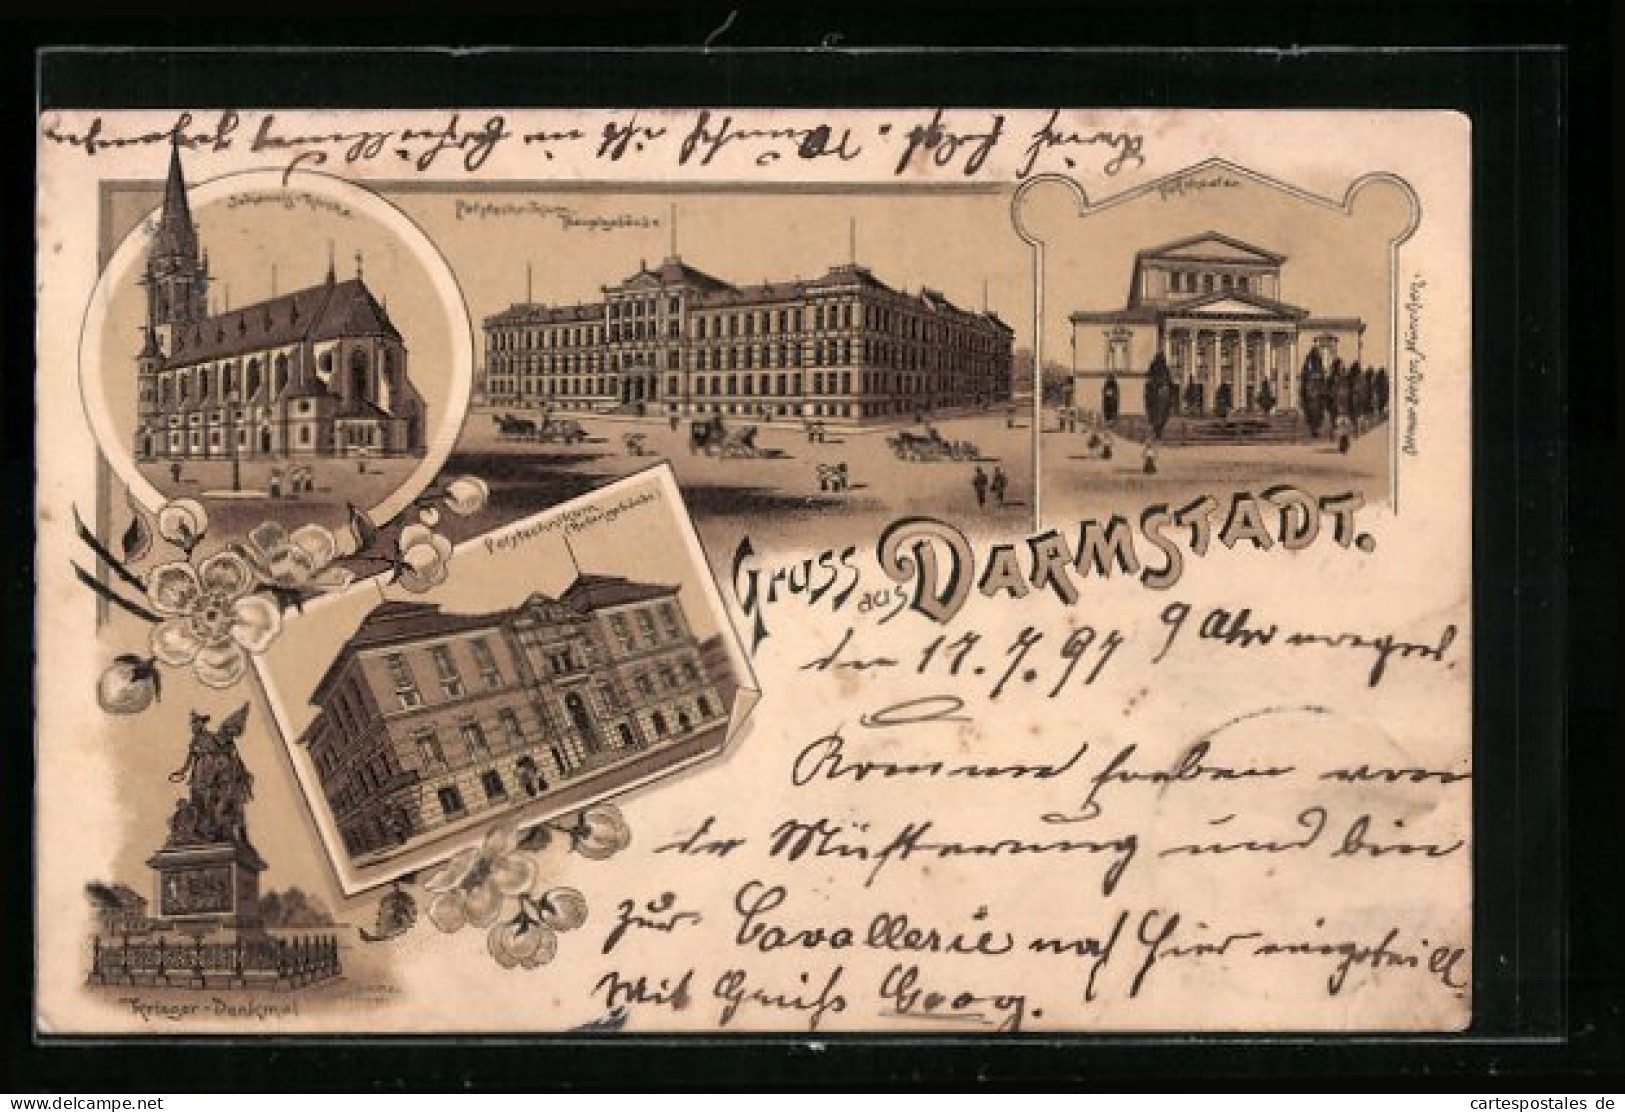 Johannis-Kirche
Polytechnikum
Hauptgebäude
Hoftheater
Ottmar Zieher, München.
Polytechnikum
(Nebengebäude)
Gruss aus DARMSTADT.
den 17.7.97 9 Uhr morgens.
Komme soeben von
der Müsterung und bin
zur Cavallerie nach hier eingeteillt
Mit Gruß Georg.
Krieger-Denkmal
cartespostales de